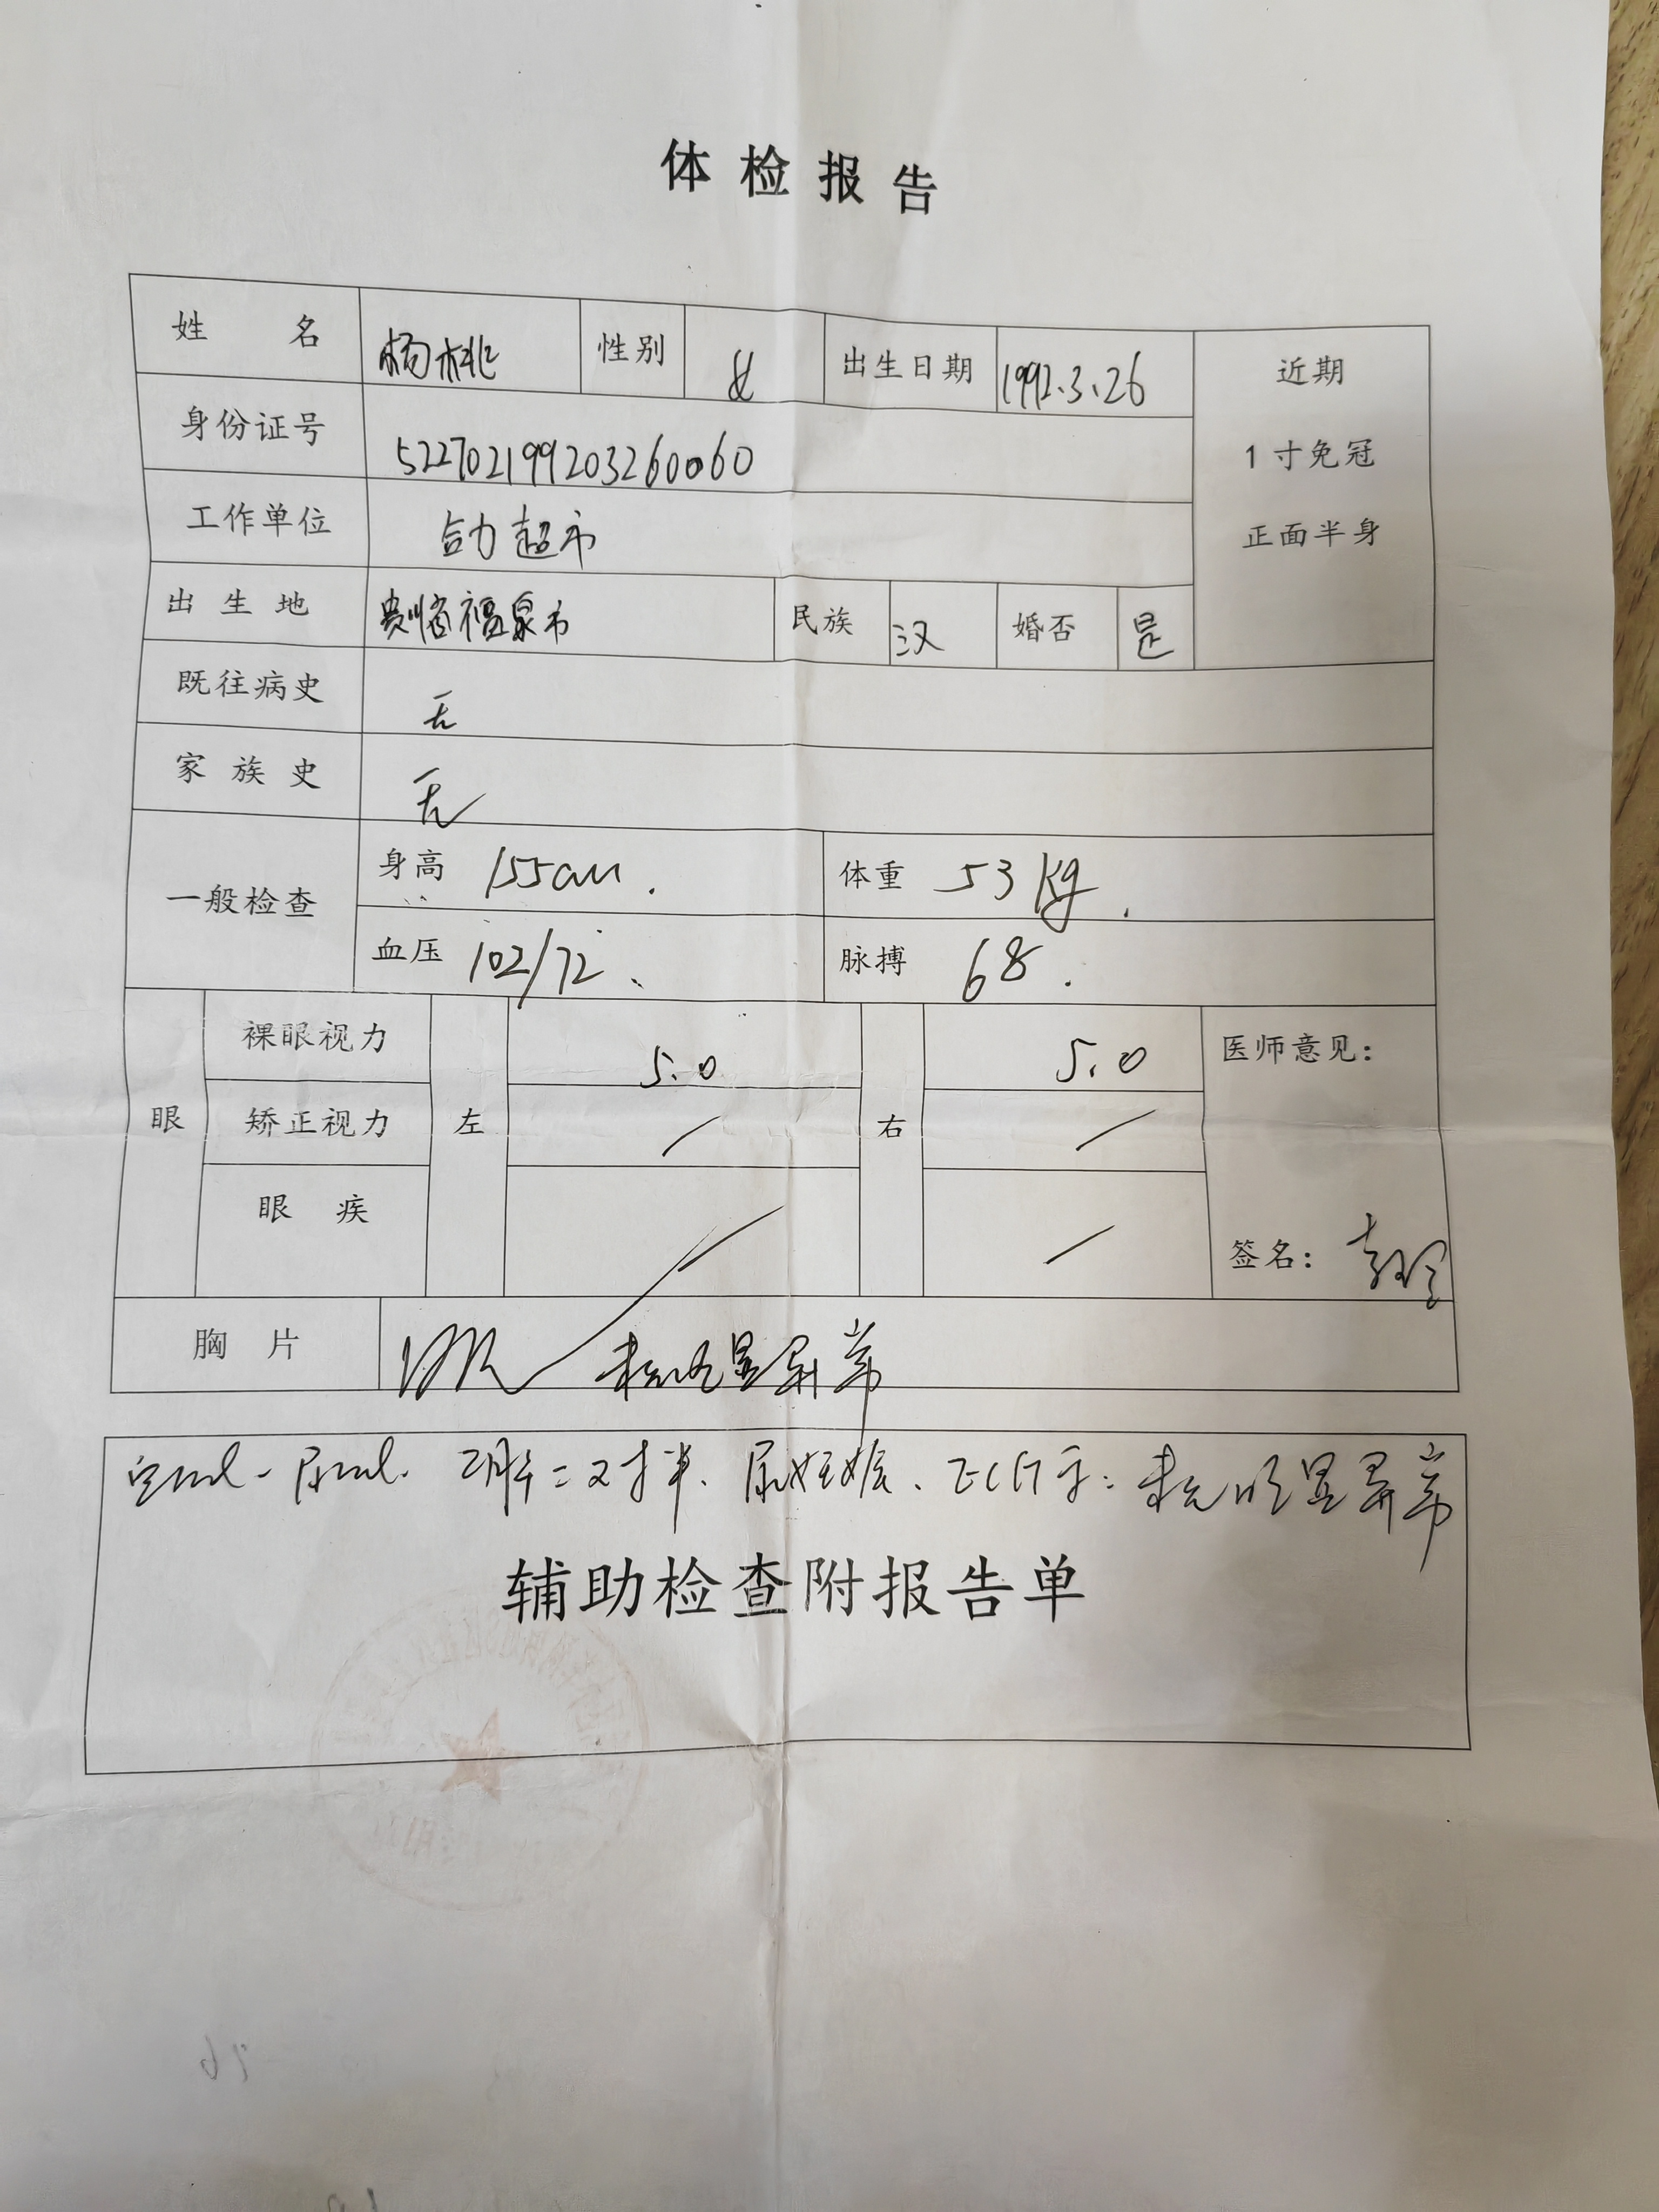 体检报告
姓名 杨桃 性别 女 出生日期 1992.3.26 近期
身份证号 522702199203260060 1寸免冠
工作单位 合力超市 正面半身
出生地 贵州省福泉市 民族 汉 婚否 是
既往病史 无
家族史 无
一般检查 身高 155cm. 体重 53kg.
血压 102/72、 脉搏 68.
眼 裸眼视力 左 5.0 右 5.0 医师意见：
矫正视力 / /
眼疾 / / 签名：
胸片 未见明显异常
尿妊娠、 未见明显异常
辅助检查附报告单